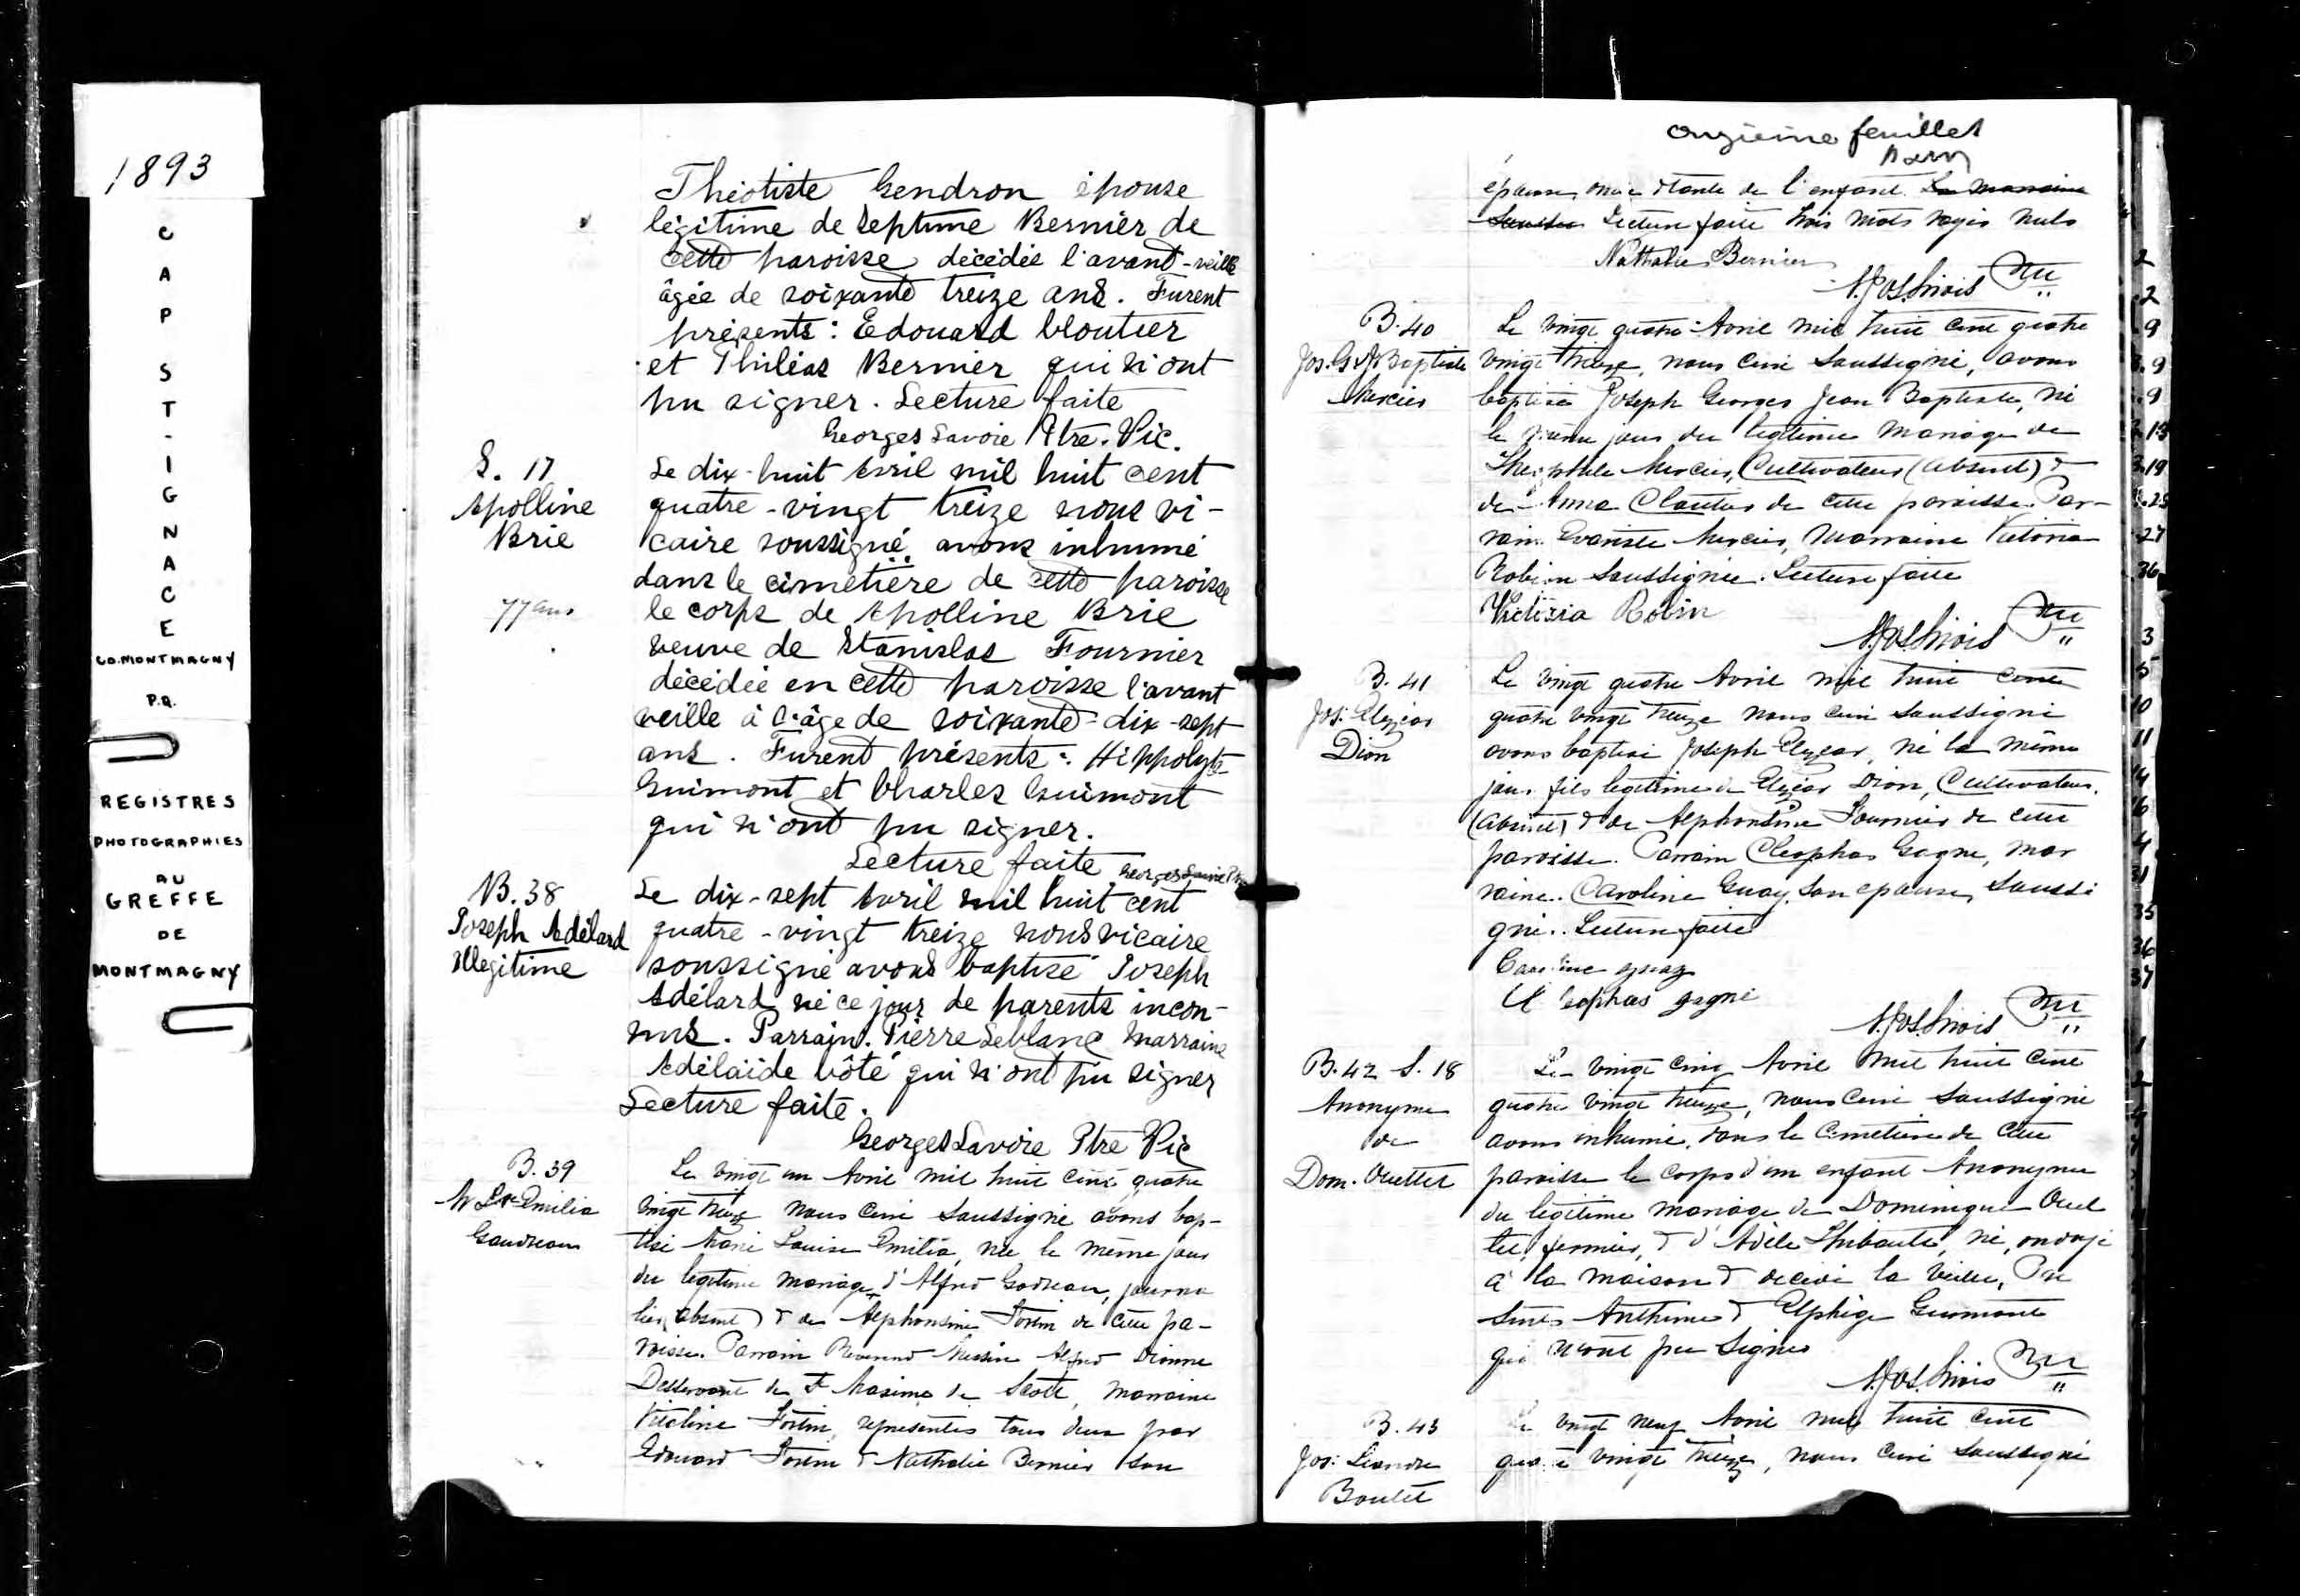 1893
CAP ST-IGNACE
CO. MONTMAGNY
P.Q.
REGISTRES
PHOTOGRAPHIES
AU
GREFFE
DE
MONTMAGNY
Théotiste Gendron épouse
légitime de Septime Bernier de
cette paroisse décédée l'avant-veille
âgée de soixante treize ans. Furent
présents: Edouard Cloutier
et Philéas Bernier qui n'ont
pu signer. Lecture faite
Georges Savoie Ptre. Vic.
S. 17
Apolline
Brie
77 ans
Le dix-huit Avril mil huit cent
quatre-vingt treize nous vi-
caire soussigné avons inhumé
dans le cimetière de cette paroisse
le corps de Apolline Brie
veuve de Stanislas Fournier
décédée en cette paroisse l'avant
veille à l'âge de soixante-dix-sept
ans. Furent présents: Hippolyte
Guimont et Charles Guimont
qui n'ont pu signer.
Lecture faite Georges Savoie Ptre
B. 38
Joseph Adélard
Illégitime
Le dix-sept Avril mil huit cent
quatre-vingt treize nous vicaire
soussigné avons baptisé Joseph
Adélard né ce jour de parents incon-
nus. Parrain Pierre Leblanc marraine
Adélaïde Côté qui n'ont pu signer
Lecture faite.
Georges Savoie Ptre Vic
B. 39
M Lse Emilia
Gaudreau
Le vingt un Avril mil huit cent quatre
vingt treize nous curé soussigné avons bap-
tisé Marie Louise Emilia, née le même jour
du légitime mariage d'Alfred Godreau, journa
lier (absent) & de Alphonsine Fortin de cette pa-
roisse. Parrain Révérend Messire Alfred Dionne
Desservant de St Maxime de Scott, marraine
Vitaline Fortin, représentés tous deux par
Edouard Fortin & Nathalie Bernier son
onzième feuillet
épouse, de l'enfant. La marraine
Lecture faite trois mots rayés nuls
Nathalie Bernier
B. 40
Jos. G. J. Baptiste
Mercier
Le vingt quatre Avril mil huit cent quatre
vingt treize, nous curé soussigné, avons
baptisé Joseph Georges Jean Baptiste, né
le même jour du légitime mariage de
Théophile Mercier, Cultivateur (absent) &
de Anna Cloutier de cette paroisse. Par-
rain Evariste Mercier, Marraine Victoria
Robin soussignée. Lecture faite
Victoria Robin
B. 41
Jos: Elzéar
Dion
Le vingt quatre Avril mil huit cent
quatre vingt treize nous curé soussigné
avons baptisé Joseph Elzear, né le même
jour fils légitime de Elzéar Dion, Cultivateur
(absent) & de Alphonsine Fournier de cette
paroisse. Parrain Cléophas Gagné, mar
raine. Caroline Guay, son épouse, soussi
gnés. Lecture faite
Caroline guay
Cleophas gagné
B. 42 S. 18
Anonyme
de
Dom. Ouellet
Le vingt cinq Avril mil huit cent
quatre vingt treize, nous curé soussigné
avons inhumé, dans le Cimetière de cette
paroisse le corps d'un enfant Anonyme
du légitime mariage de Dominique Ouel
let, fermier, & d'Adèle Thibault, né, ondoyé
à la maison & décédé la veille, Pré
sents Anthime & Elphège Guimont
qui n'ont pu signer
B. 43
Jos: Léandre
Boulet
Le vingt neuf Avril mil huit cent
quatre vingt treize, nous curé soussigné